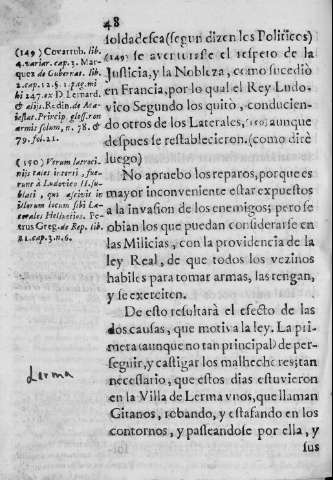 48
soldadesca (segun dizen los Politicos)
(149) se aventurasse el respeto de la
Justicia, y la Nobleza, como sucediò
en Francia, por lo qual el Rey Ludo-
vico Segundo los quitò, conducien-
do otros de los Laterales, (150) aunque
despues se restablecieron. (como dirè
luego)
No apruebo los reparos, porque es
mayor inconveniente estar expuestos
à la invasion de los enemigos; pero se
obian los que puedan considerarse en
las Milicias, con la providencia de la
ley Real, de que todos los vezinos
habiles para tomar armas, las tengan,
y se exerciten.
De esto resultarà el efecto de las
dos causas, que motiva la ley. La pri-
mera (aunque no tan principal) de per-
seguir, y castigar los malhechores; tan
necessario, que estos dias estuvieron
en la Villa de Lerma vnos, que llaman
Gitanos, robando, y estafando en los
contornos, y passeandose por ella, y
sus
(149) Covarrub. lib.
4. variar. cap. 3. Mar-
quez de Gubernat. lib.
2. cap. 12. §. 1. pag. mi
hi 247. ex D. Bernard.
& alijs. Redin. de Ma-
iestat. Princip. glos. non
armis solum, n. 78. &
79. fol. 21.
(150) Verum latruci-
nijs tales interi, fue-
runt à Ludovico II. su-
blati, qui ascivit in
illorum locum sibi La-
terales Helvetios. Pe-
trus Greg. de Rep. lib.
21. cap. 3. n. 6.
Lerma